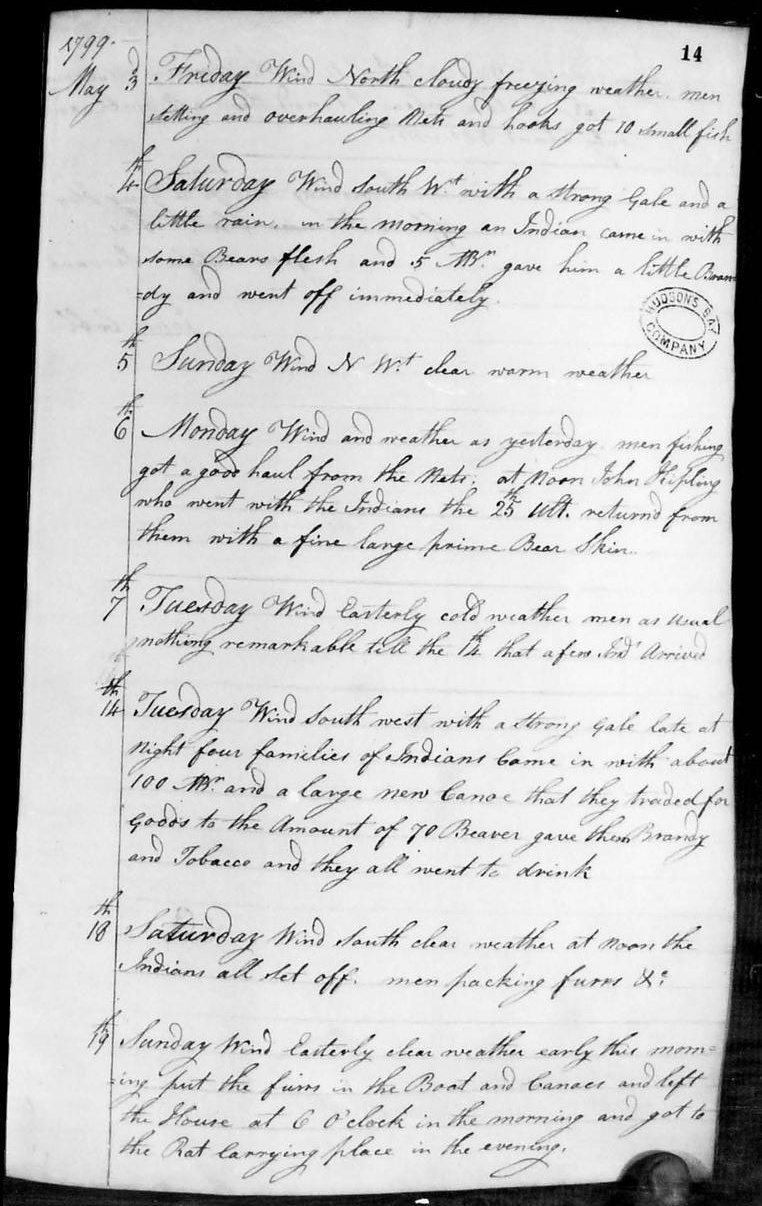 1799.
14
May 3d Friday Wind North cloudy freezing weather. men
setting and overhauling Nets and hooks got 10 small fish
4th Saturday Wind South Wt. with a strong Gale and a
little rain. in the morning an Indian came in with
some Bears flesh and 5 MBr. gave him a little Bran=
=dy and went off immediately.
HUDSON'S BAY COMPANY
5th Sunday Wind N Wt. clear warm weather
6th Monday Wind and weather as yesterday. men fishing
got a good haul from the Nets. at Noon John Kipling
who went with the Indians the 25th Ult. returnd from
them with a fine large prime Bear Skin.
7th Tuesday Wind Easterly cold weather men as usual
nothing remarkable till the 14th that a few Inds Arrived
14th Tuesday Wind South west with a strong Gale late at
Night four families of Indians Came in with about
100 MBr. and a large new Canoe that they traded for
Goods to the Amount of 70 Beaver gave them Brandy
and Tobacco and they all went to drink
18th Saturday Wind South clear weather at Noon the
Indians all set off. men packing furrs &c
19th Sunday Wind Easterly clear weather early this morn=
=ing put the furrs in the Boat and Canoes and left
the House at 6 O'clock in the morning and got to
the Rat Carrying place in the evening.